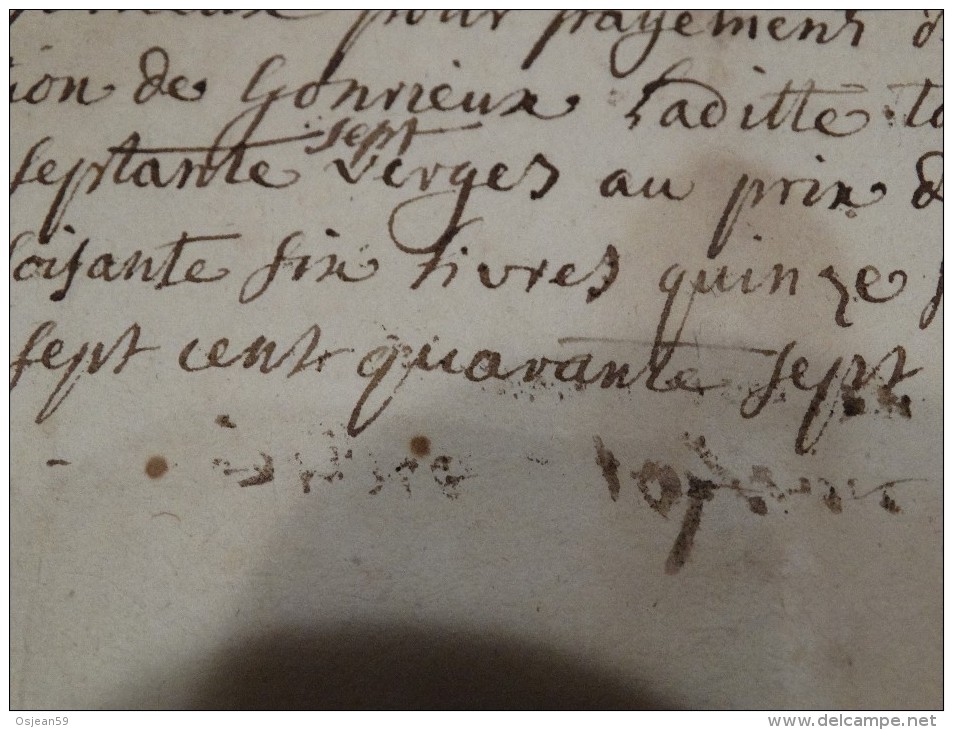 pour payement d
ion de Gonrieux Laditte to
sept
septante verges au prix d
soisante six livres quinze s
sept cent quarante sept
Osjean59
www.delcampe.net